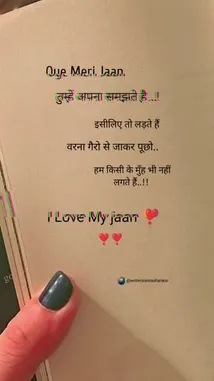 Oye Meri Jaan,
तुम्हें अपना समझते है ...!
इसीलिए तो लड़ते हैं
वरना गैरो से जाकर पूछो..
हम किसी के मुँह भी नहीं
लगते हैं..!!
I Love My jaan ❣️
❣️❣️